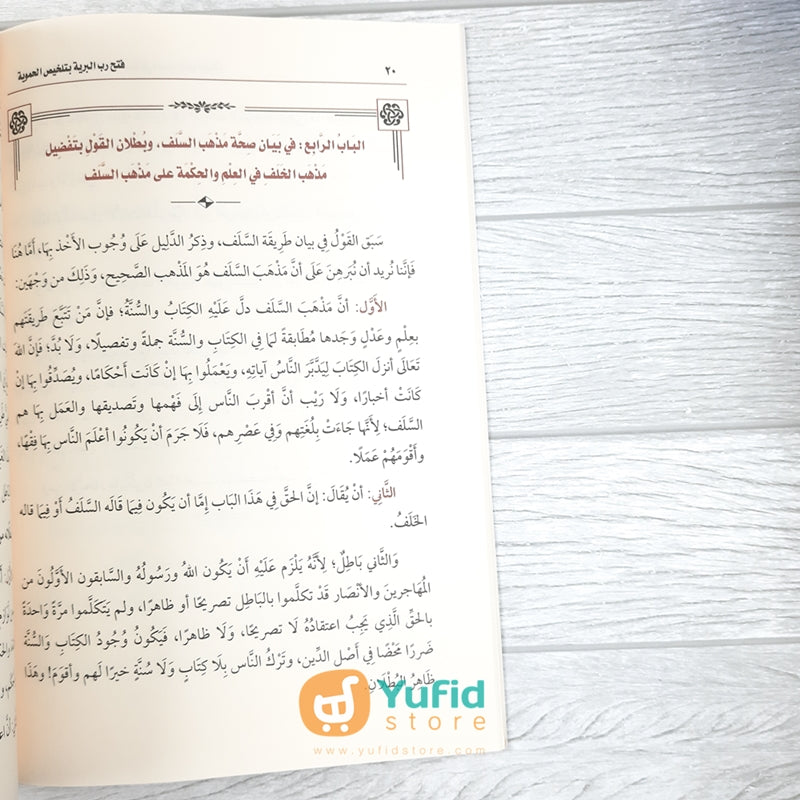 ٢٠ فتح رب البرية بتلخيص الحموية
البَابُ الرَّابِع: في بَيَان صِحَّة مَذْهَب السَّلَف، وبُطْلان القَوْلِ بتَفْضِيل
مَذْهَب الخَلَفِ في العِلْمِ والحِكْمَة على مَذْهَب السَّلَف
سَبَق القَوْلُ فِي بيان طَرِيقَة السَّلَف، وذِكرُ الدَّلِيل عَلَى وُجُوب الأَخْذ بِهَا، أمَّا هُنَا
فَإنَّنا نُريد أن نُبَرهِنَ عَلَى أنَّ مَذْهَبَ السَّلَف هُوَ المَذْهب الصَّحِيح، وَذَلِكَ من وَجْهَين:
الأَوَّل: أنَّ مَذْهَبَ السَّلَف دلَّ عَلَيْهِ الكِتَابُ والسُّنَّةُ؛ فإنَّ مَنْ تَتَبَّعَ طَرِيقَتَهم
بعِلْمٍ وعَدْلٍ وَجَدها مُطَابقةً لمَا فِي الكِتَابِ والسُّنَّة جملةً وتفصيلًا، وَلَا بُدَّ؛ فَإنَّ اللهَ
تَعَالَى أنزلَ الكِتَابَ لِيَدَّبَّرَ النَّاسُ آياتِه، ويَعْمَلُوا بِهَا إنْ كَانَت أَحْكَامًا، ويُصَدِّقُوا بِهَا إنْ
كَانَتْ أخبارًا، وَلَا رَيْب أنَّ أقْربَ النَّاس إلَى فَهْمها وتَصديقها والعَمَل بِهَا هم
السَّلَف؛ لِأَنَّهَا جَاءَتْ بِلُغَتِهم وَفي عَصْرهِم، فَلَا جَرَمَ أنْ يَكُونُوا أَعْلَمَ النَّاس بِهَا فِقْهًا،
وأَقْوَمَهُمْ عَمَلًا.
الثَّانِي: أنْ يُقَالَ: إنَّ الحَقَّ فِي هَذَا البَاب إمَّا أن يَكُون فِيمَا قَالَه السَّلَفُ أَوْ فِيمَا قاله
الخَلَفُ.
وَالثَّاني بَاطِلٌ؛ لِأَنَّهُ يَلْزَم عَلَيْهِ أنْ يَكُون اللهُ ورَسُولُهُ والسَّابقون الأَوَّلُونَ من
المُهَاجرينَ والأنْصَار قَدْ تكلَّموا بالبَاطِل تصريحًا أو ظاهرًا، ولم يَتَكَلَّموا مرَّةً وَاحدَةً
بالحقِّ الَّذِي يَجِبُ اعتقادُهُ لَا تصريحًا، وَلَا ظاهرًا، فَيَكُونُ وُجُودُ الكِتَابِ وَالسُّنَّة
ضَررًا مَحْضًا فِي أصْل الدِّين، وتَرْكُ النَّاس بِلَا كِتَابٍ وَلَا سُنَّةٍ خيرًا لَهم وأقومَ! وهَذَا
ظَاهِرُ البُطْلَانِ.
Yufid
store
www.yufidstore.com